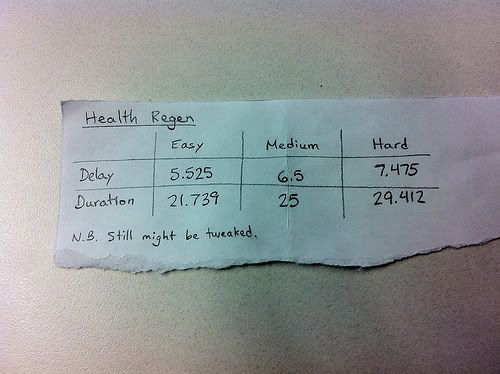 Health Regen
Easy Medium Hard
Delay 5.525 6.5 7.475
Duration 21.739 25 29.412
N.B. Still might be tweaked.